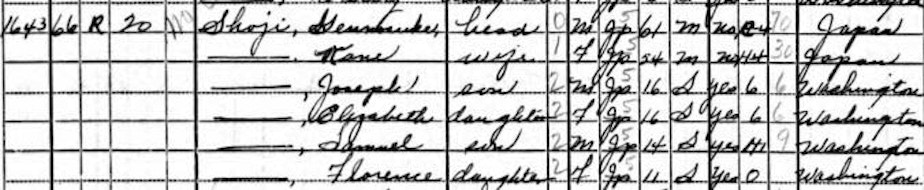 1643 66 R 20 No Shoji, Gennosuke, head 0 M Jp 5 61 M no C-4 70 Japan
——, Kane wife 1 F Jp 5 54 M no H4 30 Japan
——, Joseph son 2 M Jp 5 16 S yes 6 6 Washington
——, Elizabeth daughter 2 F Jp 5 16 S yes 6 6 Washington
——, Samuel son 2 M Jp 5 14 S yes H1 9 Washington
——, Florence daughter 2 F Jp 5 11 S yes 0 Washington